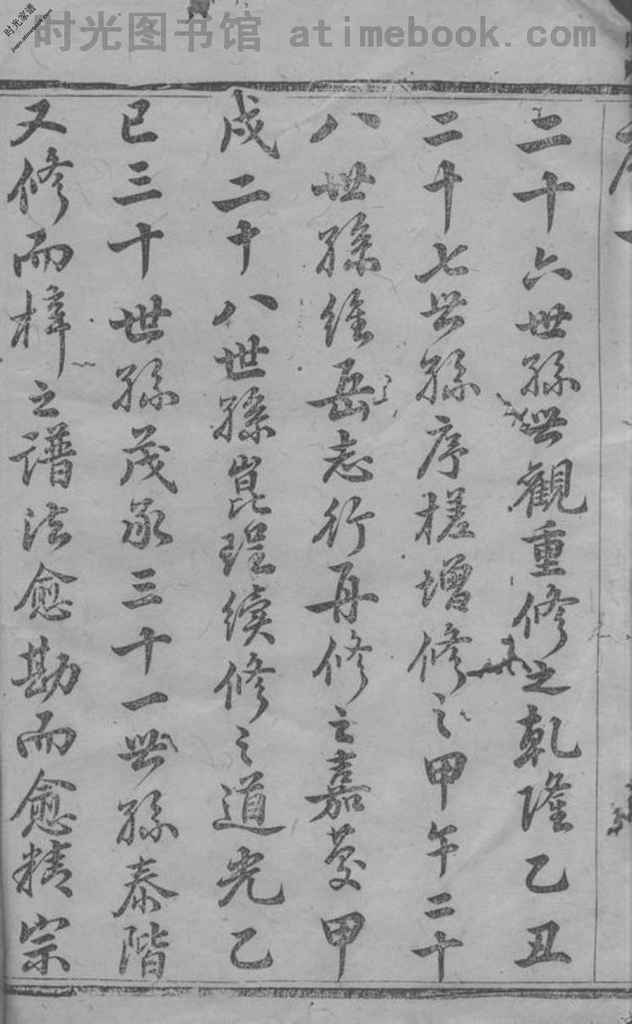 时光图书馆 atimebook.com
时光家谱
二十六世孫世觀重修之乾隆乙丑
二十七世孫序槎增修之甲午二十
八世孫維岳志行再修之嘉慶甲
戌二十八世孫崑珵續修之道光乙
巳三十世孫茂承三十一世孫泰階
又修而梓之譜法愈勘而愈精宗